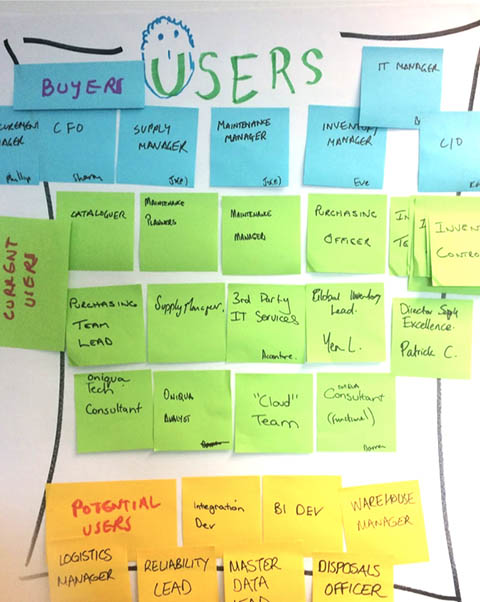 USERS
BUYERS
IT MANAGER
CFO
Sharon
SUPPLY
MANAGER
MAINTENANCE
MANAGER
INVENTORY
MANAGER
Eve
CIO
Phillip
CURRENT
USERS
CATALOGUER
MAINTENANCE
PLANNERS
MAINTENANCE
MANAGER
PURCHASING
OFFICER
IN
TE
I
INVEN
CONTRO
PURCHASING
TEAM
LEAD
Supply Manager.
3rd Party
IT Services
Accenture.
Global Inventory
Lead.
Yen L.
Director Supply
Excellence.
Patrick C.
Oniqua
Tech
Consultant
ONIQUA
ANALYST
"Cloud"
Team
Consultant
(functional)
Darren
POTENTIAL
USERS
Integration
Dev
BI DEV
WAREHOUSE
MANAGER
LOGISTICS
MANAGER
RELIABILITY
LEAD
MASTER
DATA
LEAD
DISPOSALS
OFFICER